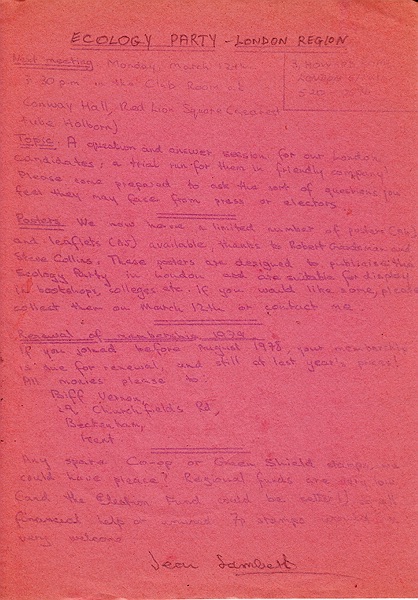 ECOLOGY PARTY - LONDON REGION
Next meeting Monday March 12th
7.30pm in the Club Room at
Conway Hall, Red Lion Square (nearest
tube Holborn)
LONDON
Topic: A question and answer session for our London
candidates; a trial run for them in friendly company!
Please come prepared to ask the sort of questions you
feel they may face from press or electors.
Posters We now have a limited number of posters
and leaflets (A5) available, thanks to Robert and
Steve Collins. These posters are designed to publicise the
Ecology Party in London and are suitable for display
in bookshops, colleges etc. If you would like some, please
collect them on March 12th or contact me.
Renewal of membership 1979
If you joined before August 1978, your membership
is due for renewal, and still at last year's price!
All monies please to:
Biff Vernon,
Churchfields Rd,
Beckenham,
Kent
Any spare Co-op or Green Shield stamps we
could have please? Regional funds are very low
and the Election Fund could be better!
financial help or unused 7p stamps
very welcome
Jean Lambert